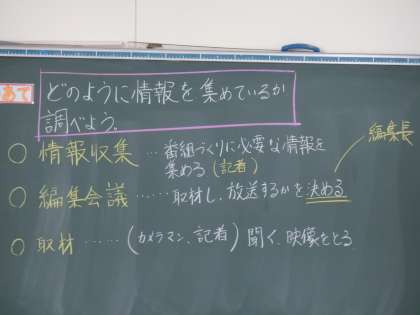 めあて
どのように情報を集めているか
調べよう。
○ 情報収集 …番組づくりに必要な情報を
集める(記者)
編集長
○ 編集会議 ……取材し、放送するかを決める
○ 取材 ……(カメラマン、記者)聞く、映像をとる